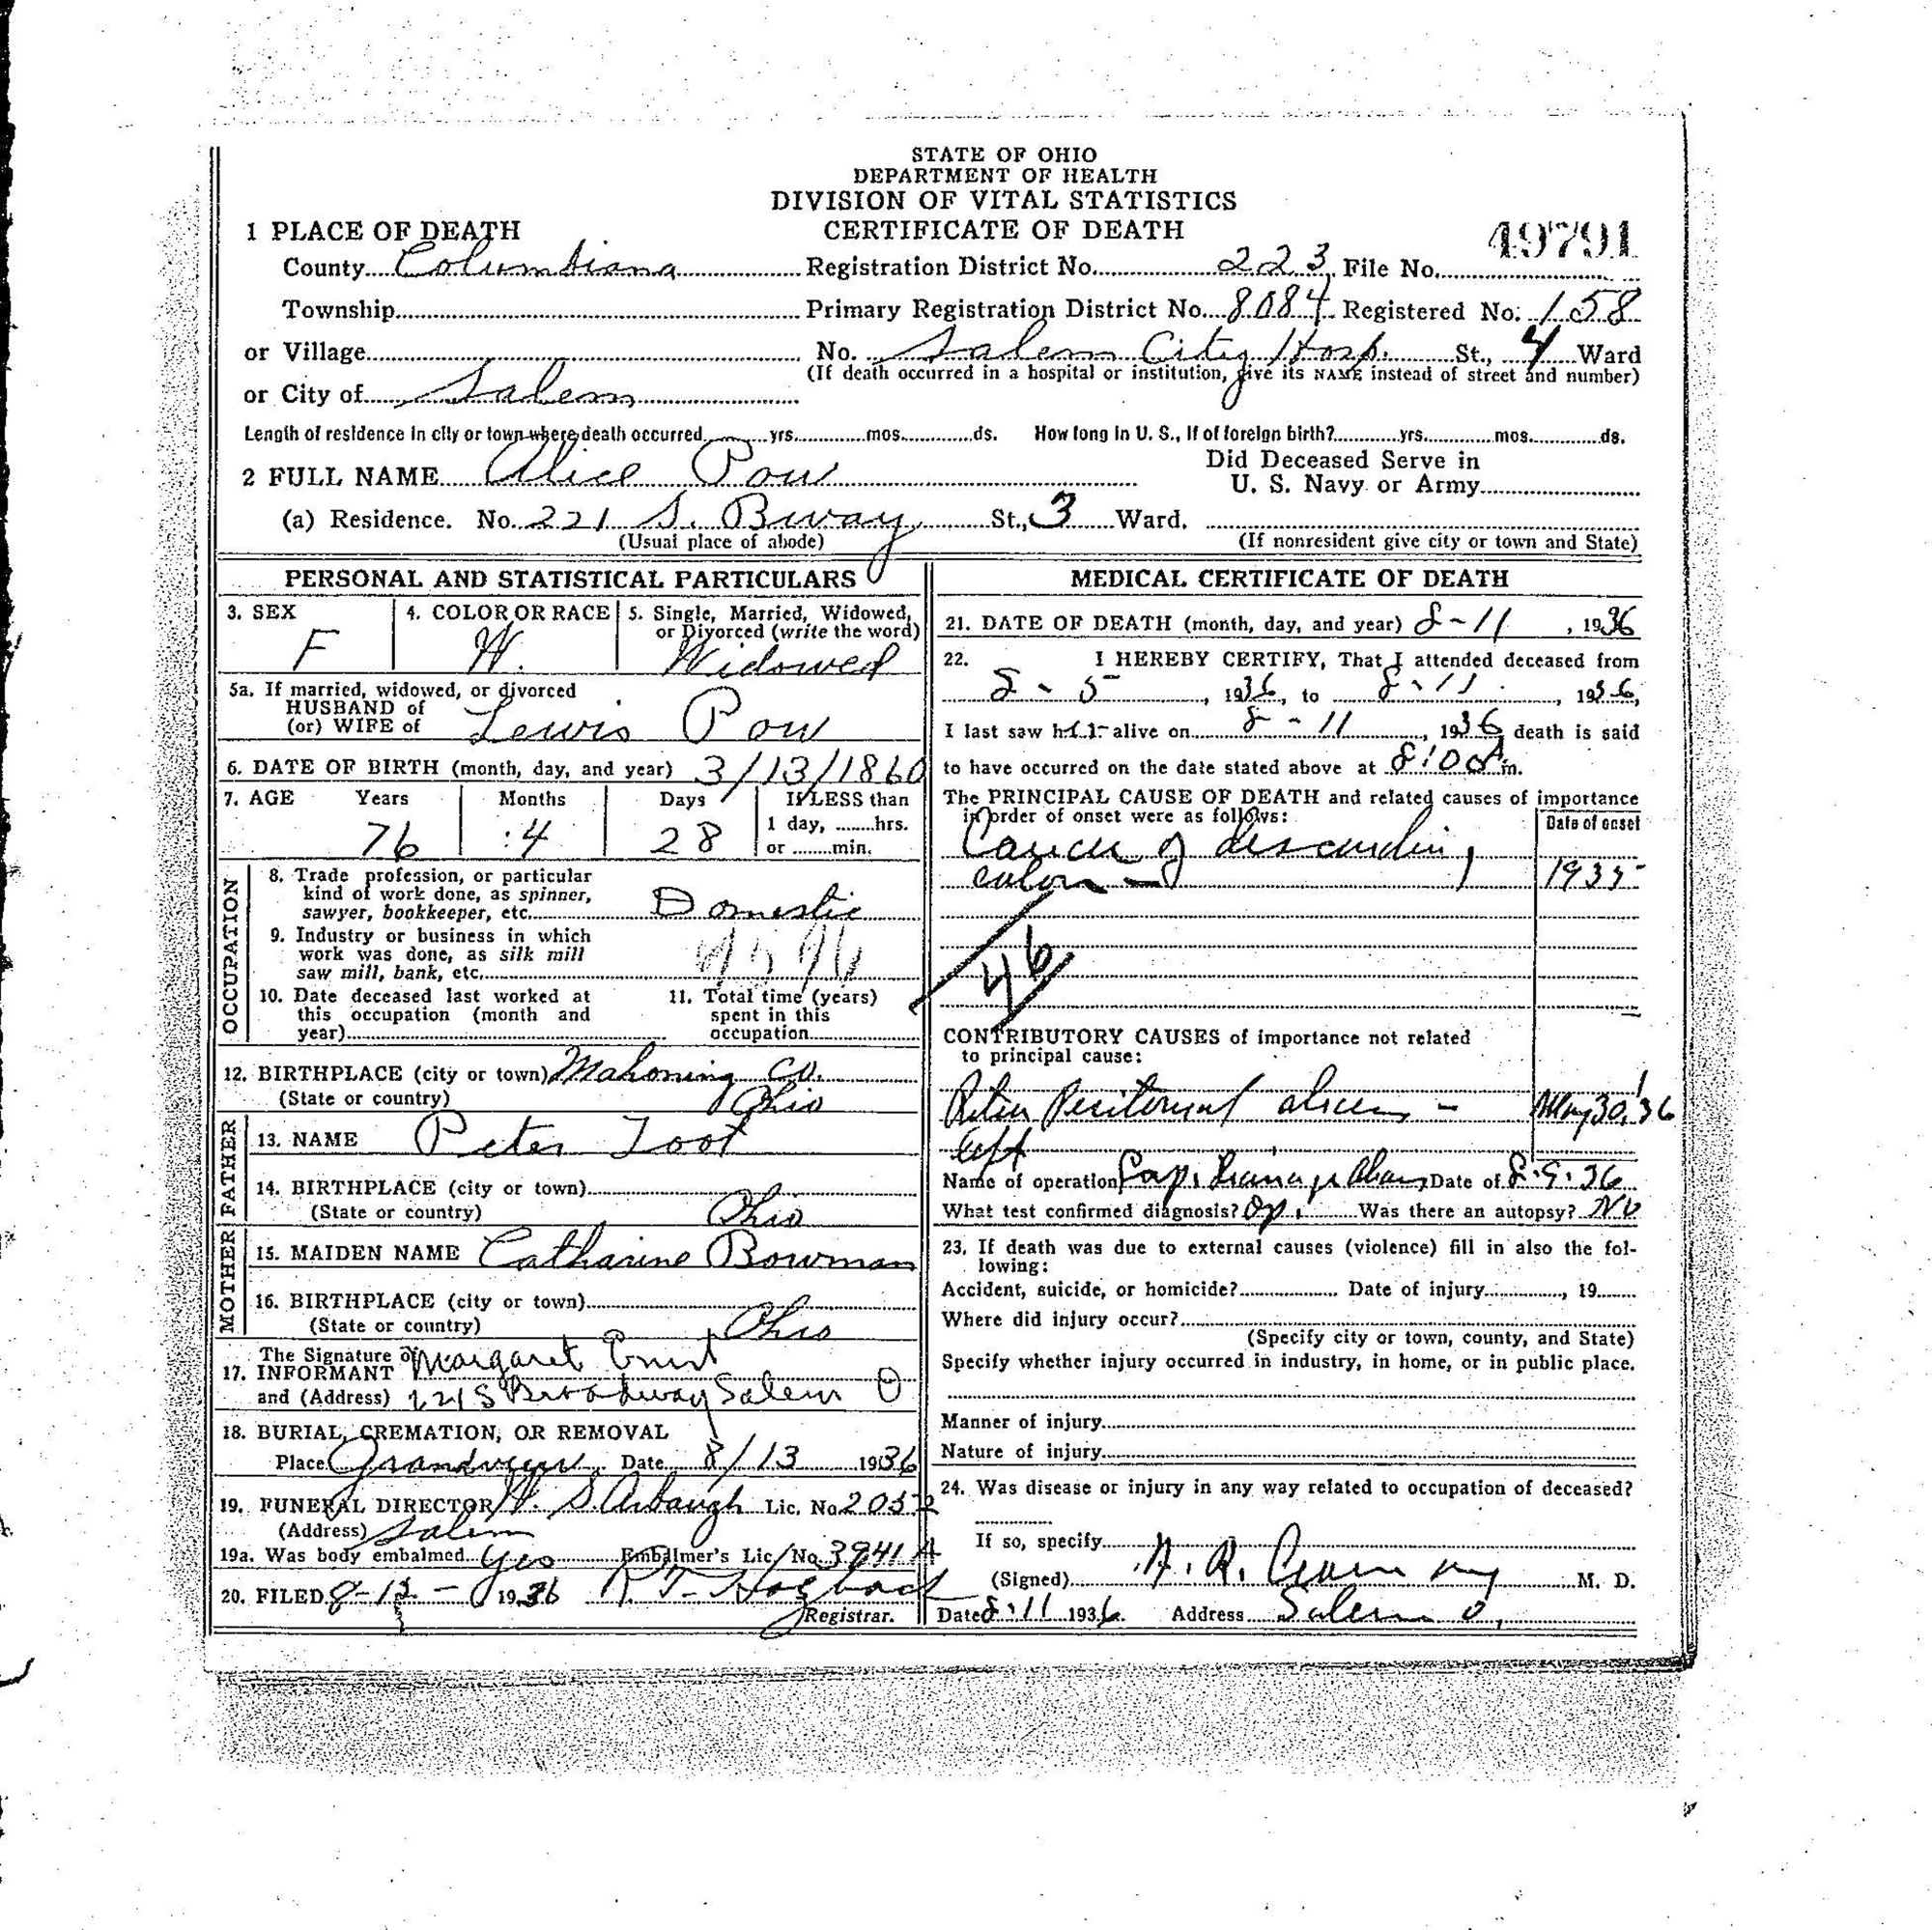 STATE OF OHIO
DEPARTMENT OF HEALTH
DIVISION OF VITAL STATISTICS
CERTIFICATE OF DEATH
49791
1 PLACE OF DEATH
County Columbiana Registration District No. 223 File No.
Township Primary Registration District No. 8084 Registered No. 158
or Village No. Salem City Hosp. St., 4 Ward
(If death occurred in a hospital or institution, give its NAME instead of street and number)
or City of Salem
Length of residence in city or town where death occurred yrs. mos. ds. How long in U. S., if of foreign birth? yrs. mos. ds.
2 FULL NAME Alice Pow
Did Deceased Serve in
U. S. Navy or Army
(a) Residence. No. 221 S. Bway St., 3 Ward.
(Usual place of abode) (If nonresident give city or town and State)
PERSONAL AND STATISTICAL PARTICULARS
3. SEX 4. COLOR OR RACE 5. Single, Married, Widowed,
or Divorced (write the word)
F W. Widowed
5a. If married, widowed, or divorced
HUSBAND of
(or) WIFE of Lewis Pow
6. DATE OF BIRTH (month, day, and year) 3/13/1860
7. AGE Years Months Days If LESS than
1 day, hrs.
or min.
76 4 28
OCCUPATION
8. Trade profession, or particular
kind of work done, as spinner,
sawyer, bookkeeper, etc. Domestic
9. Industry or business in which
work was done, as silk mill
saw mill, bank, etc.
10. Date deceased last worked at
this occupation (month and
year)
11. Total time (years)
spent in this
occupation
12. BIRTHPLACE (city or town) Mahoning Co.
(State or country) Ohio
FATHER
13. NAME Peter Toot
14. BIRTHPLACE (city or town)
(State or country) Ohio
MOTHER
15. MAIDEN NAME Catharine Bowman
16. BIRTHPLACE (city or town)
(State or country) Ohio
The Signature of
17. INFORMANT Margaret
and (Address) 221 S Broadway Salem O
18. BURIAL, CREMATION, OR REMOVAL
Place Grandview Date 8/13 1936
19. FUNERAL DIRECTOR W. S. Arbaugh Lic. No.
(Address) Salem
19a. Was body embalmed Yes Embalmer's Lic. No. 3941 A
20. FILED 8-12- 1936
Registrar.
MEDICAL CERTIFICATE OF DEATH
21. DATE OF DEATH (month, day, and year) 8-11, 1936
22. I HEREBY CERTIFY, That I attended deceased from
8-5, 1936, to 8-11, 1936,
I last saw her alive on 8-11, 1936 death is said
to have occurred on the date stated above at 8:00 A m.
The PRINCIPAL CAUSE OF DEATH and related causes of importance
in order of onset were as follows:
Date of onset
Cancer of descending
colon - 1935
46
CONTRIBUTORY CAUSES of importance not related
to principal cause:
Peritoneal - May 30, '36
left
Name of operation Drainage Date of 8.5.36
What test confirmed diagnosis? Op. Was there an autopsy? No
23. If death was due to external causes (violence) fill in also the fol-
lowing:
Accident, suicide, or homicide? Date of injury , 19
Where did injury occur?
(Specify city or town, county, and State)
Specify whether injury occurred in industry, in home, or in public place.
Manner of injury
Nature of injury
24. Was disease or injury in any way related to occupation of deceased?
If so, specify
(Signed) M. D.
Date 8.11 1936. Address Salem O.